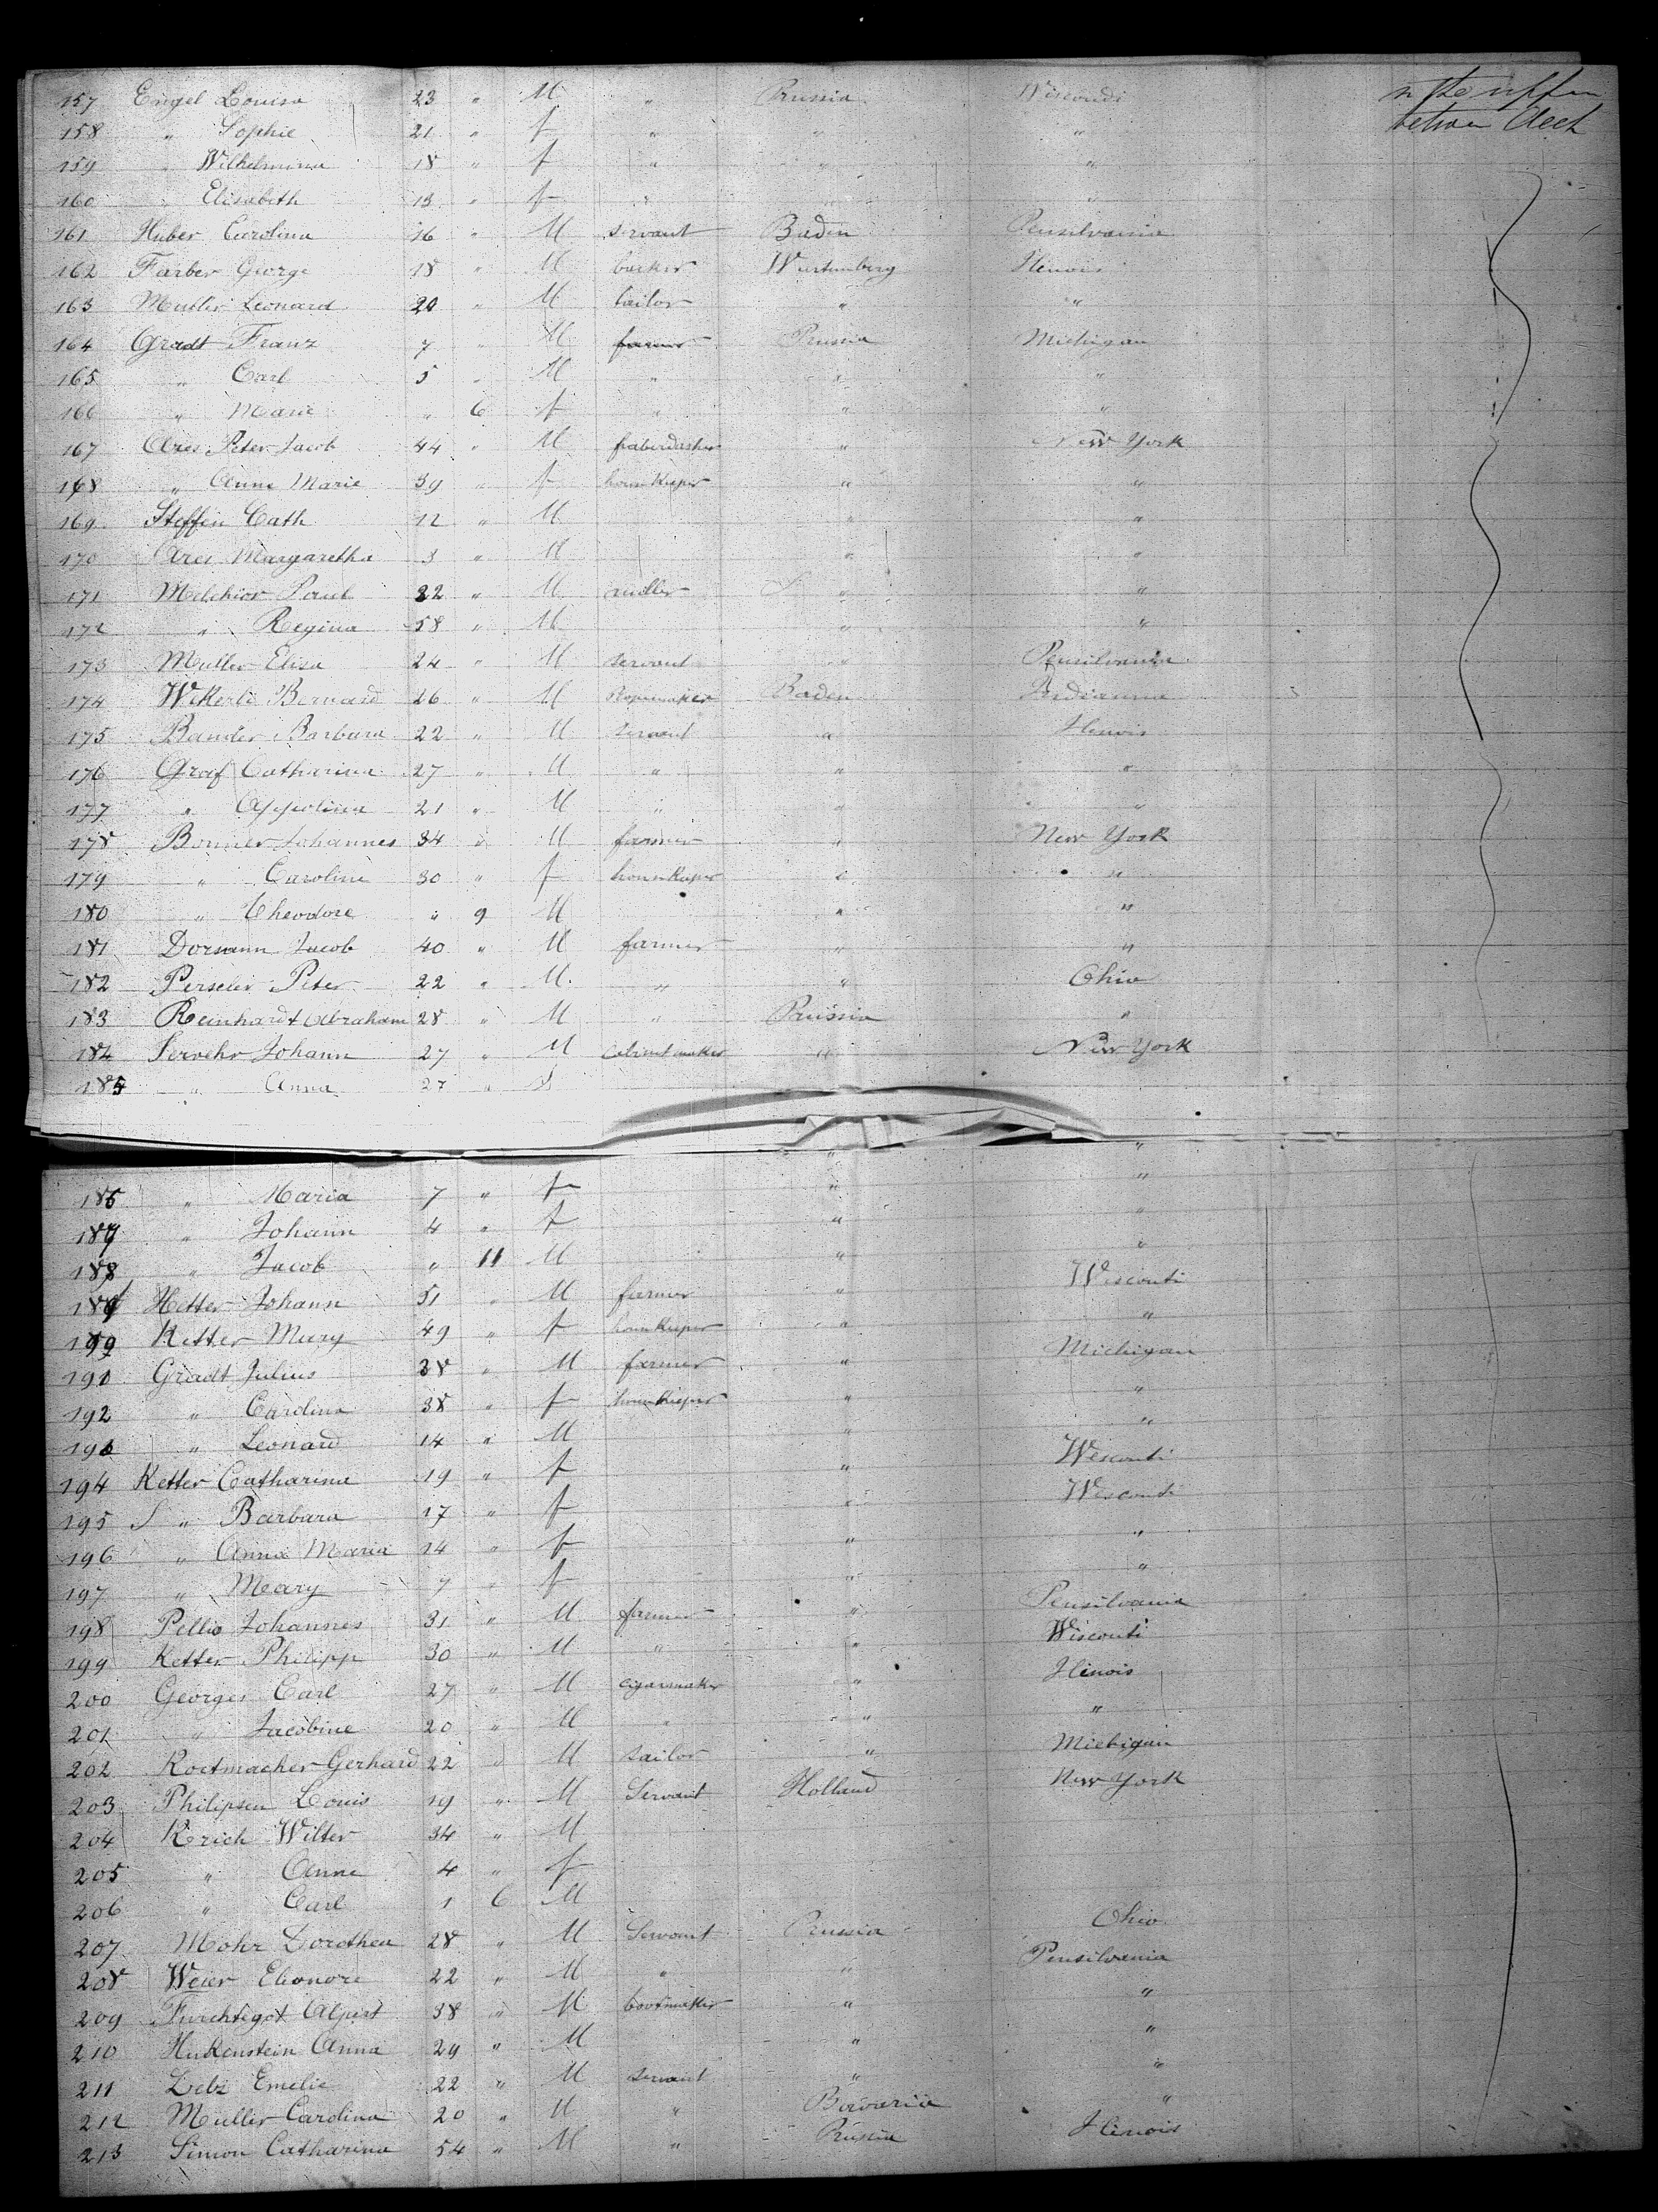 157 Engel Louisa 23 " M " Prussia Wisconti in the upper
158 " Sophie 21 " f " " " between deck
159 " Wilhelmina 18 " f " " "
160 " Elisabeth 13 " f " " "
161 Huber Carolina 16 " M servant Baden Pensilvania
162 Farber George 18 " M backer Wurtemberg Ilinois
163 Muller Leonard 20 " M tailor " "
164 Gradt Franz 7 " M farmer Prussia Michigan
165 " Carl 5 " M " " "
166 " Marie " 6 f " " "
167 Ares Peter Jacob 44 " M haberdasher " New York
168 " Anna Marie 39 " f housekeeper " "
169 Steffin Cath 12 " M " "
170 Ares Margaretha 3 " M " "
171 Melchior Paul 22 " M miller " "
172 " Regina 58 " M " "
173 Muller Elisa 24 " M servant " Pensilvania
174 Wekerle Bernard 26 " M Ropemaker Baden Indianna
175 Bander Barbara 22 " M servant " Ilinois
176 Graf Catharina 27 " M " " "
177 " Appolina 21 " M " " "
178 Bonner Johannes 34 " M farmer " New York
179 " Caroline 30 " f housekeeper " "
180 " Theodore " 9 M " "
181 Dormann Jacob 40 " M farmer " "
182 Perseler Peter 22 " M " " Ohio
183 Reinhardt Abraham 28 " M " Prussia "
184 Servehr Johann 27 " M cabinetmaker " New York
185 " Anna 27 " f
" "
186 " Maria 7 " f " "
187 " Johann 4 " f " "
188 " Jacob " 11 M " "
189 Hetter Johann 51 " M farmer " Wisconti
190 Ketter Mary 49 " f housekeeper " "
191 Gradt Julius 38 " M farmer " Michigan
192 " Carolina 38 " f housekeeper " "
193 " Leonard 14 " M " "
194 Ketter Catharina 19 " f " Wisconti
195 " Barbara 17 " f " Wisconti
196 " Anna Maria 14 " f " "
197 " Mary 7 " f " "
198 Pellio Johannes 31 " M farmer " Pensilvania
199 Ketter Philipp 30 " M " " Wisconti
200 Georges Carl 27 " M cigarmaker " Ilinois
201 " Jacobine 20 " M " " "
202 Roetmacher Gerhard 22 " M tailor " Michigan
203 Philipsen Louis 19 " M Servant Holland New York
204 Krich Wilter 34 " M
205 " Anne 4 " f
206 " Carl 1 6 M
207 Mohr Dorothea 28 " M Servant Prussia Ohio
208 Weier Eleonore 22 " M " " Pensilvania
209 Furchtegot 38 " M bootmaker " "
210 Hukenstein Anna 29 " M " "
211 Lebz Emelie 22 " M servant " "
212 Muller Carolina 20 " M " Bavaria "
213 Simon Catharina 54 " M " Prussia Ilinois